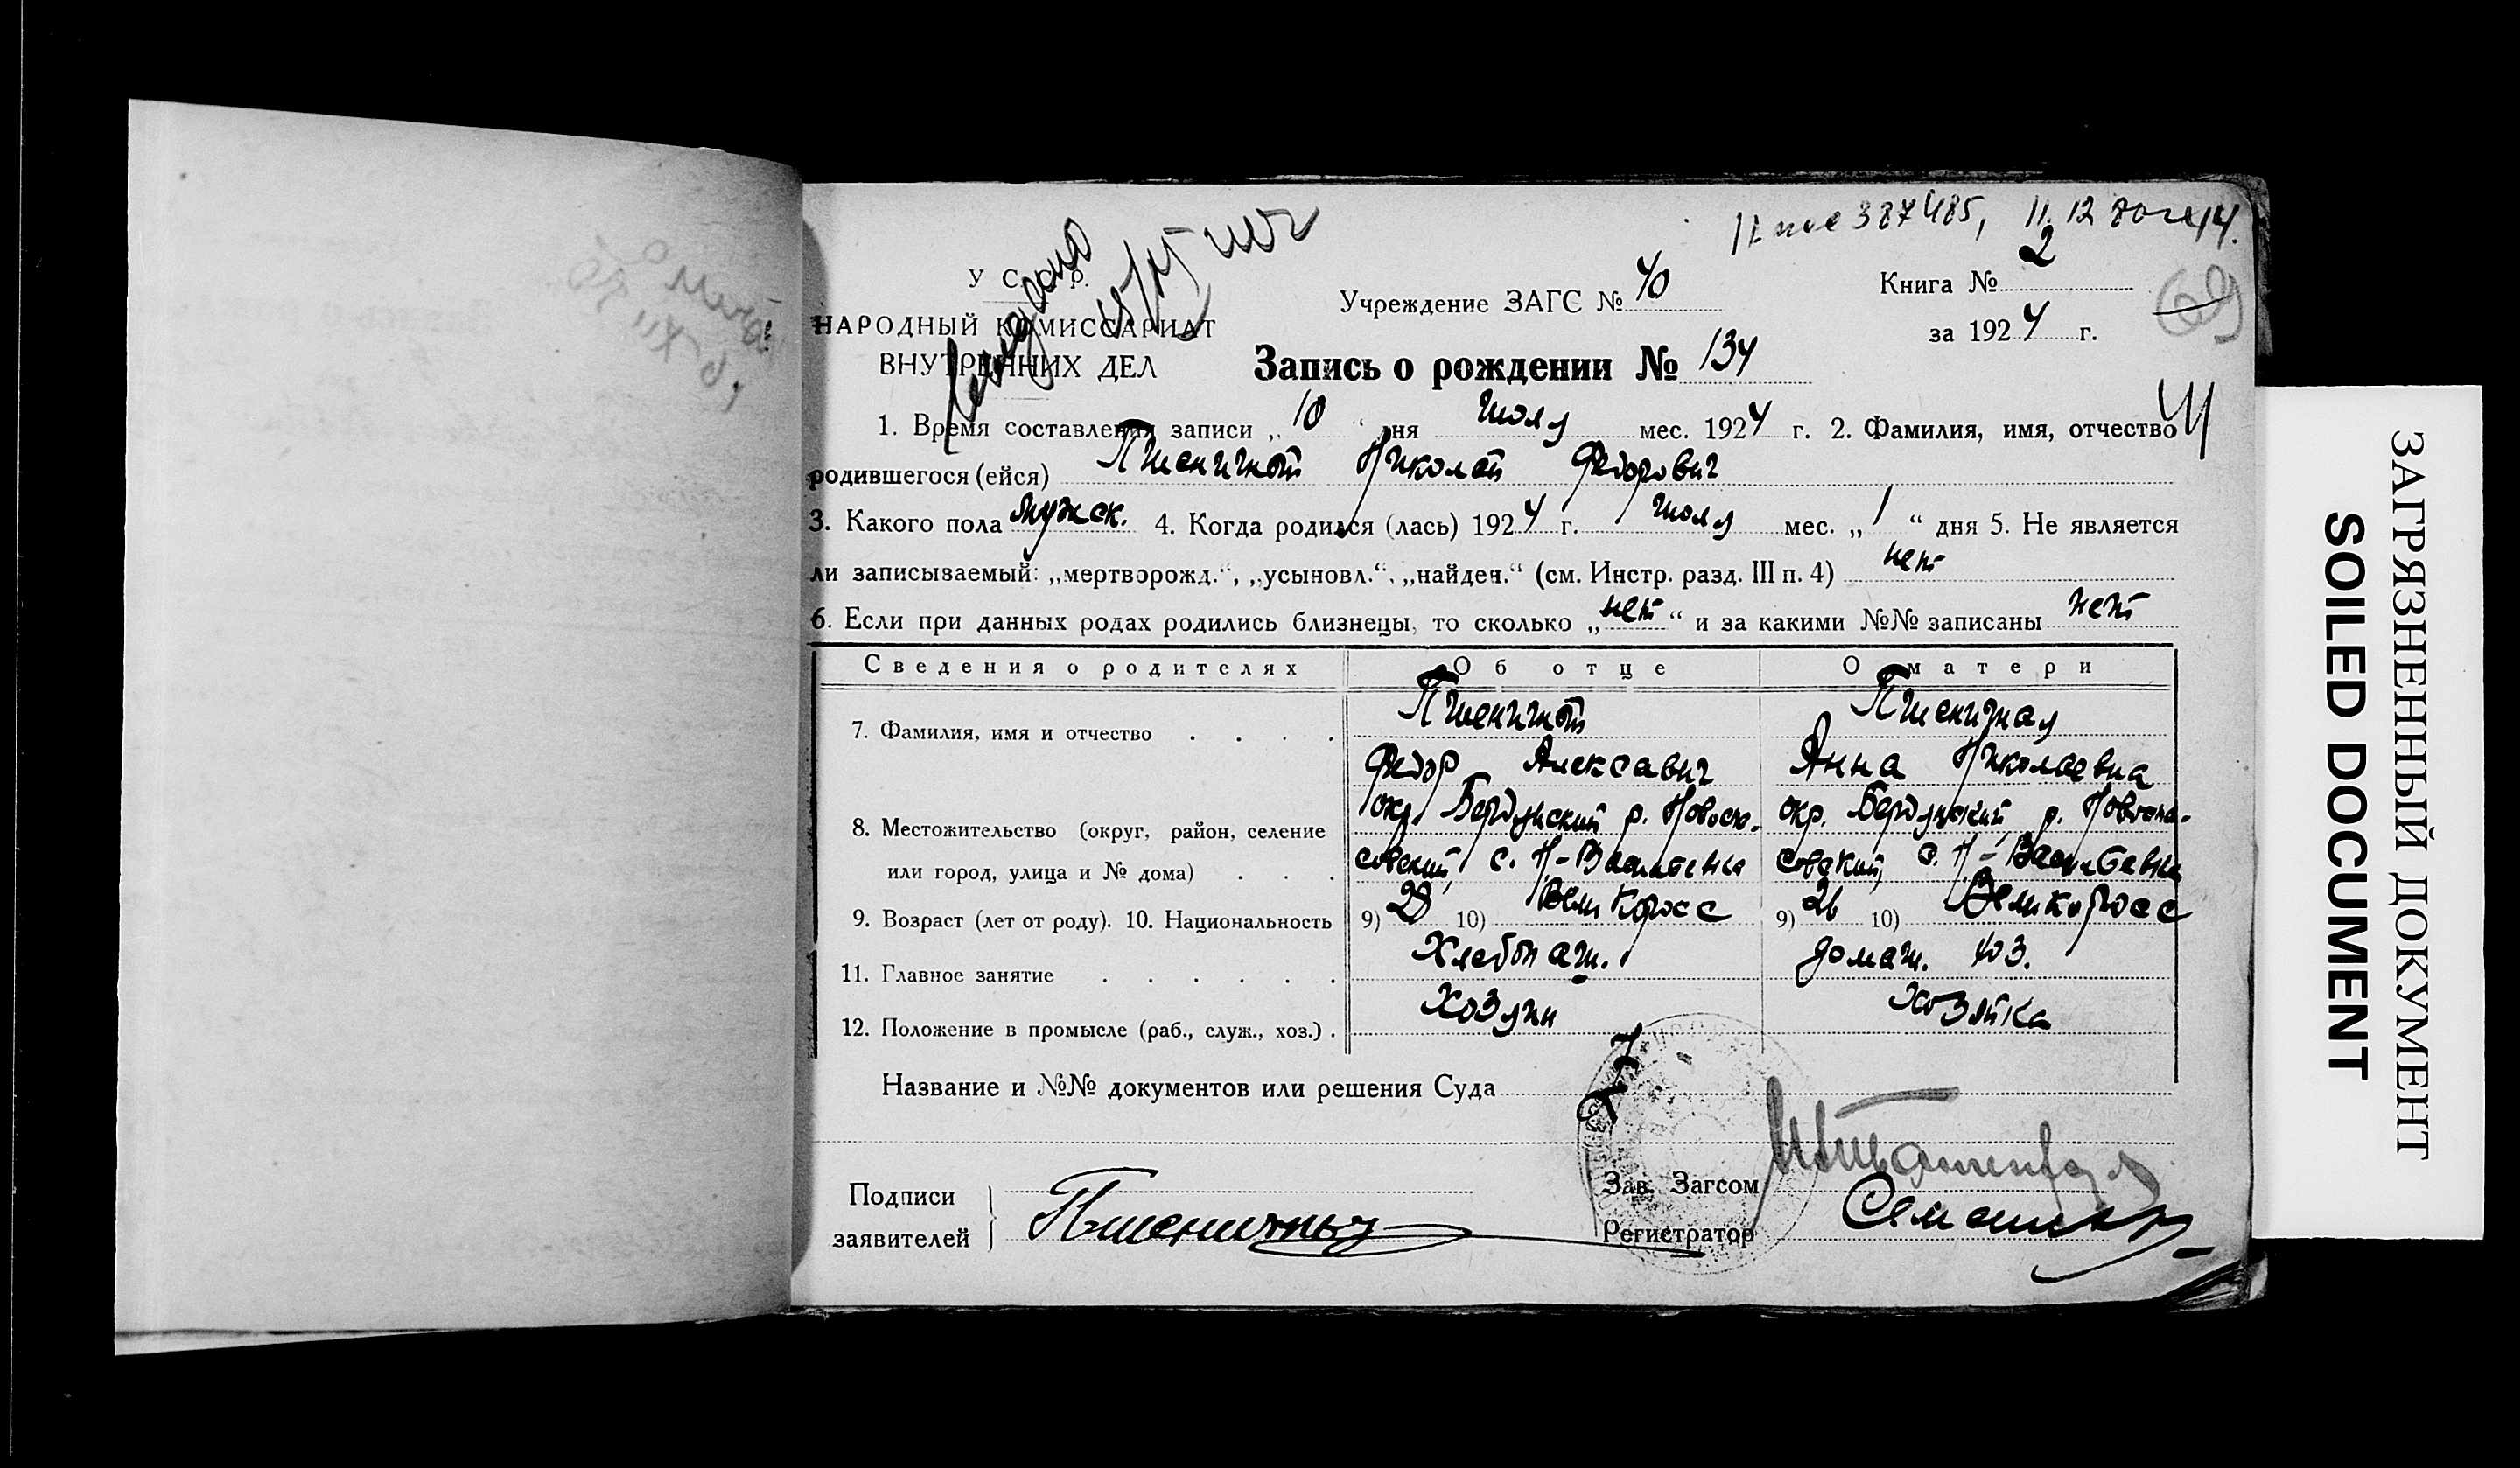 387485, 11. 12
У. С. С. Р.
НАРОДНЫЙ КОМИССАРИАТ
ВНУТРЕННИХ ДЕЛ
Учреждение ЗАГС № 40
Книга № 2
за 1924 г.
69
Запись о рождении № 134
1. Время составления записи „ 10 “ дня июля мес. 1924 г. 2. Фамилия, имя, отчество
родившегося (ейся) Пшеничной Николай Федорович
3. Какого пола мужск. 4. Когда родился (лась) 1924 г. июля мес. „ 1 “ дня 5. Не является
ли записываемый: „мертворожд.“, „усыновл.“, „найден.“ (см. Инстр. разд. III п. 4) нет
6. Если при данных родах родились близнецы, то сколько „ нет “ и за какими №№ записаны нет
Сведения о родителях Об отце О матери
7. Фамилия, имя и отчество . . . . Пшеничной Пшеничная
Федор Алексавич Анна Николаевна
8. Местожительство (округ, район, селение окр. Бердянский р. Новоспа- окр. Бердянский р. Новоспа-
или город, улица и № дома) . . . совский с. Н-Васильевка совский с. Н-Васильевка
9. Возраст (лет от роду). 10. Национальность 9) 10) Великоросс 9) 26 10) Великоросс
11. Главное занятие . . . . . . Хлебопаш. домаш. хоз.
12. Положение в промысле (раб., служ., хоз.) . Хозяин Хозяйка
Название и №№ документов или решения Суда
Подписи
заявителей
Пшеничный
Зав. Загсом
Регистратор
ЗАГРЯЗНЕННЫЙ ДОКУМЕНТ
SOILED DOCUMENT